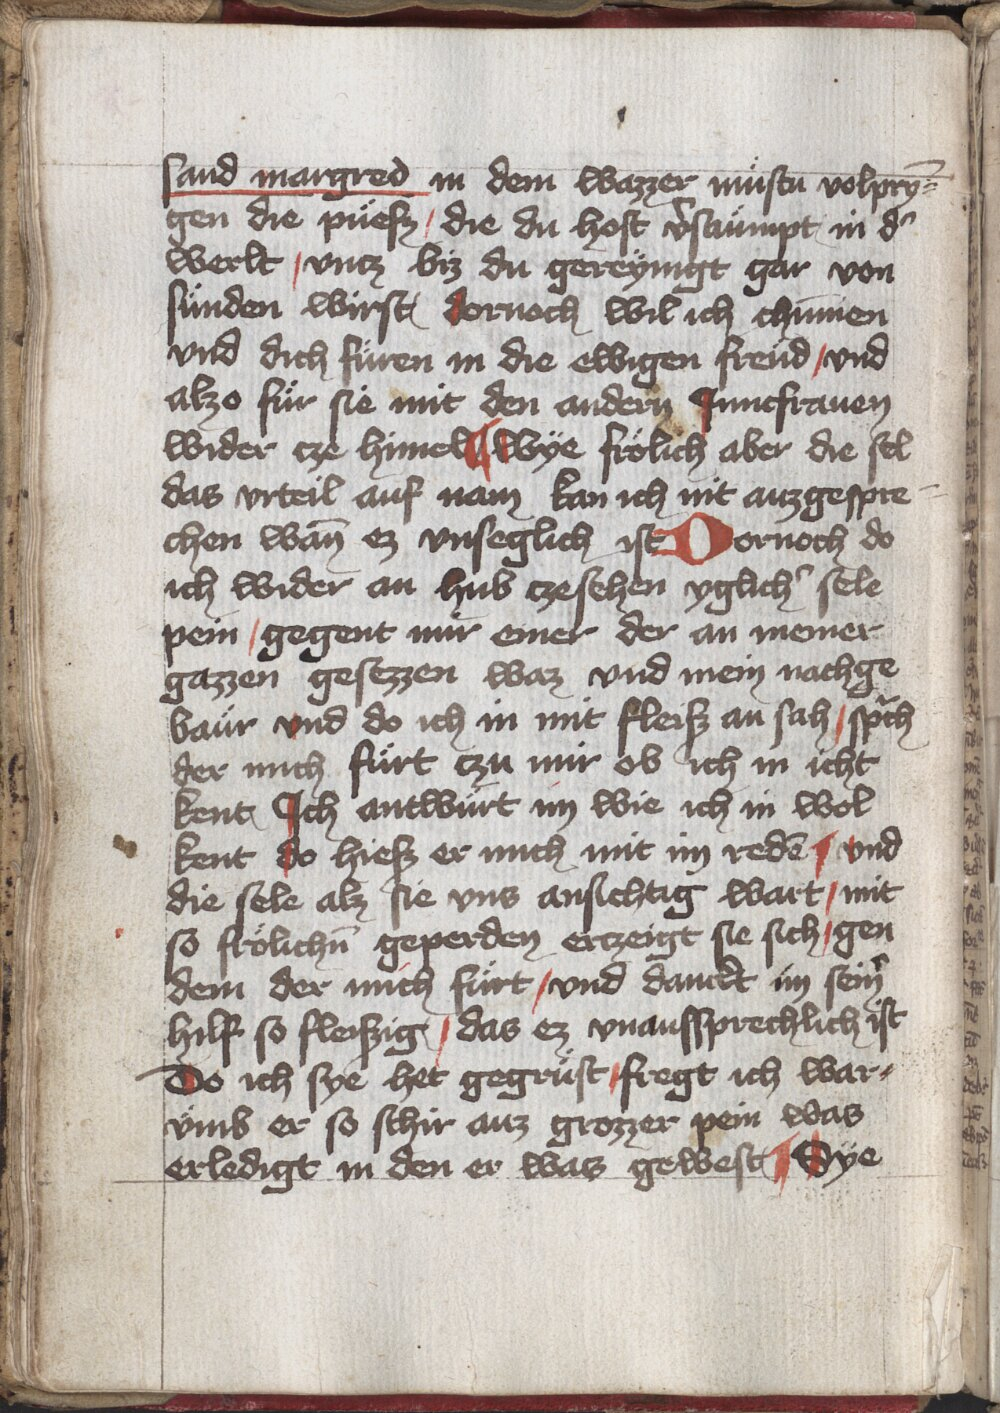 sand margred in dem wazzer müstu volpry=
gen die püesz / die du host v̾saümpt in d̾
werlt / vntz biz du gereyingt gar von
sünden wirst dornoch wil ich chūmen
vnd dich füren in die ewigen freüd / vnd
alzo für sie mit den andern Juncfrauen
wider cze himel ¶ Wye frölich aber die sel
das vrteil auf nam kan ich nit auzgespre=
chen wan̄ ez vnseglich ist Dornoch do
ich wider an hub czesehen yglich̾ sele
pein / gegent mir einer der an meiner
gazzen gesezzen waz vnd mein nachge
baür vnd do ich in mit fleisz an sah / sprach
der mich fürt czu mir ob ich in icht
kent Ich antwürt im wie ich in wol
kent do hiesz er mich mit im redē / vnd
die sele alz sie vns ansichtig wart / mit
so frölichn̄ geperden erczeigt sie sich / gen
dem der mich fürt / vnd danckt im sein̾
hilf so fleiszig / das ez vnaussprechlich ist
Do ich sye het gegrüst / fregt ich war=
vmb er so schir auz grozzer pein was
erledigt in den er was gewest ¶ Dye